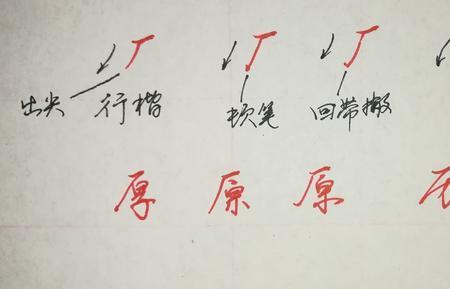 厂 厂 厂
出尖 行楷 顿笔 回带撇
厚 原 原